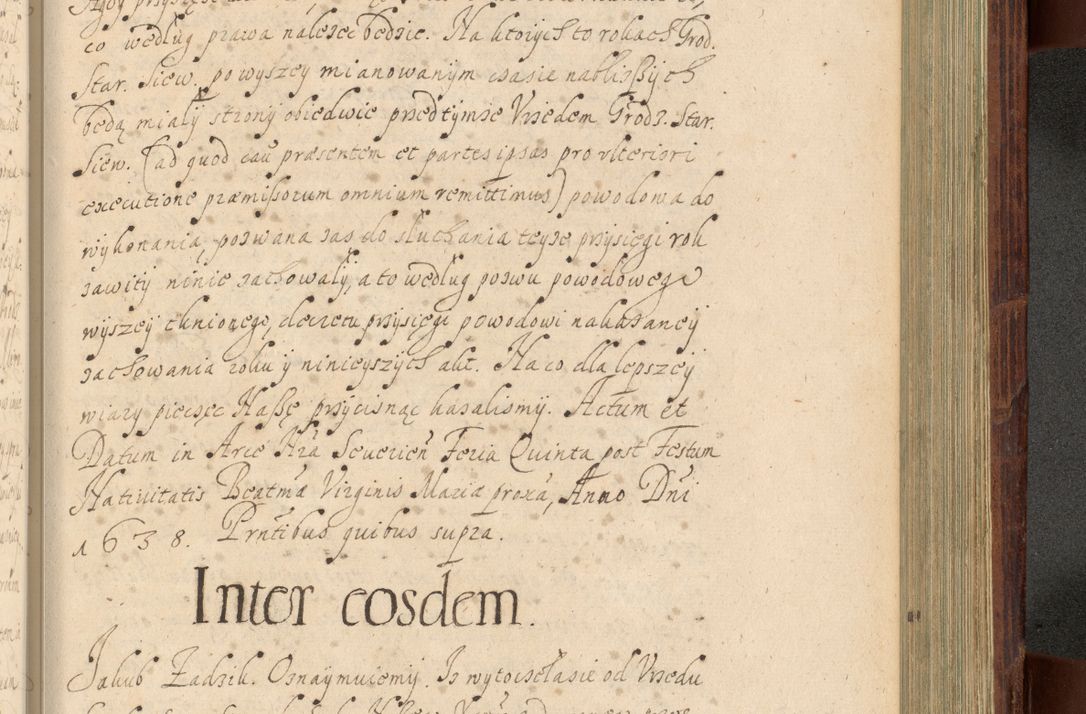 co według prawa nalezec będzie. Na ktorych to rokach Grod.
Star. Siew. powyszey mianowanym czasie nablizszych
będą miały strony obiedwie przed tymze Vrzedem Grodz. Star.
Siew. (ad quod cau præsentem et partes ipsas pro vlteriori
executione præmissorum omnium remittimus) powodowa do
wykonania, pozwana zas do słuchania teyze przysięgi rok
zawity ninie zachowały, a to według pozwu powodowego
wyszey tknionego, decretu przysięgi powodowi nakazaney
zachowania roku y ninieyszych akt. Na co dla lepszey
wiary pieczęc Naszę przycisnąc kazalismy. Actum et
Datum in Arce Nrã Seuerień Feria Quinta post Festum
Natiuitatis Beatmæ Virginis Mariæ proxã, Anno Dñi
1638. Prntibus quibus supra.
Inter eosdem.
Jakub Zadzik. Oznaymuiemy. Iz wytoczeła sie od Vrzedu